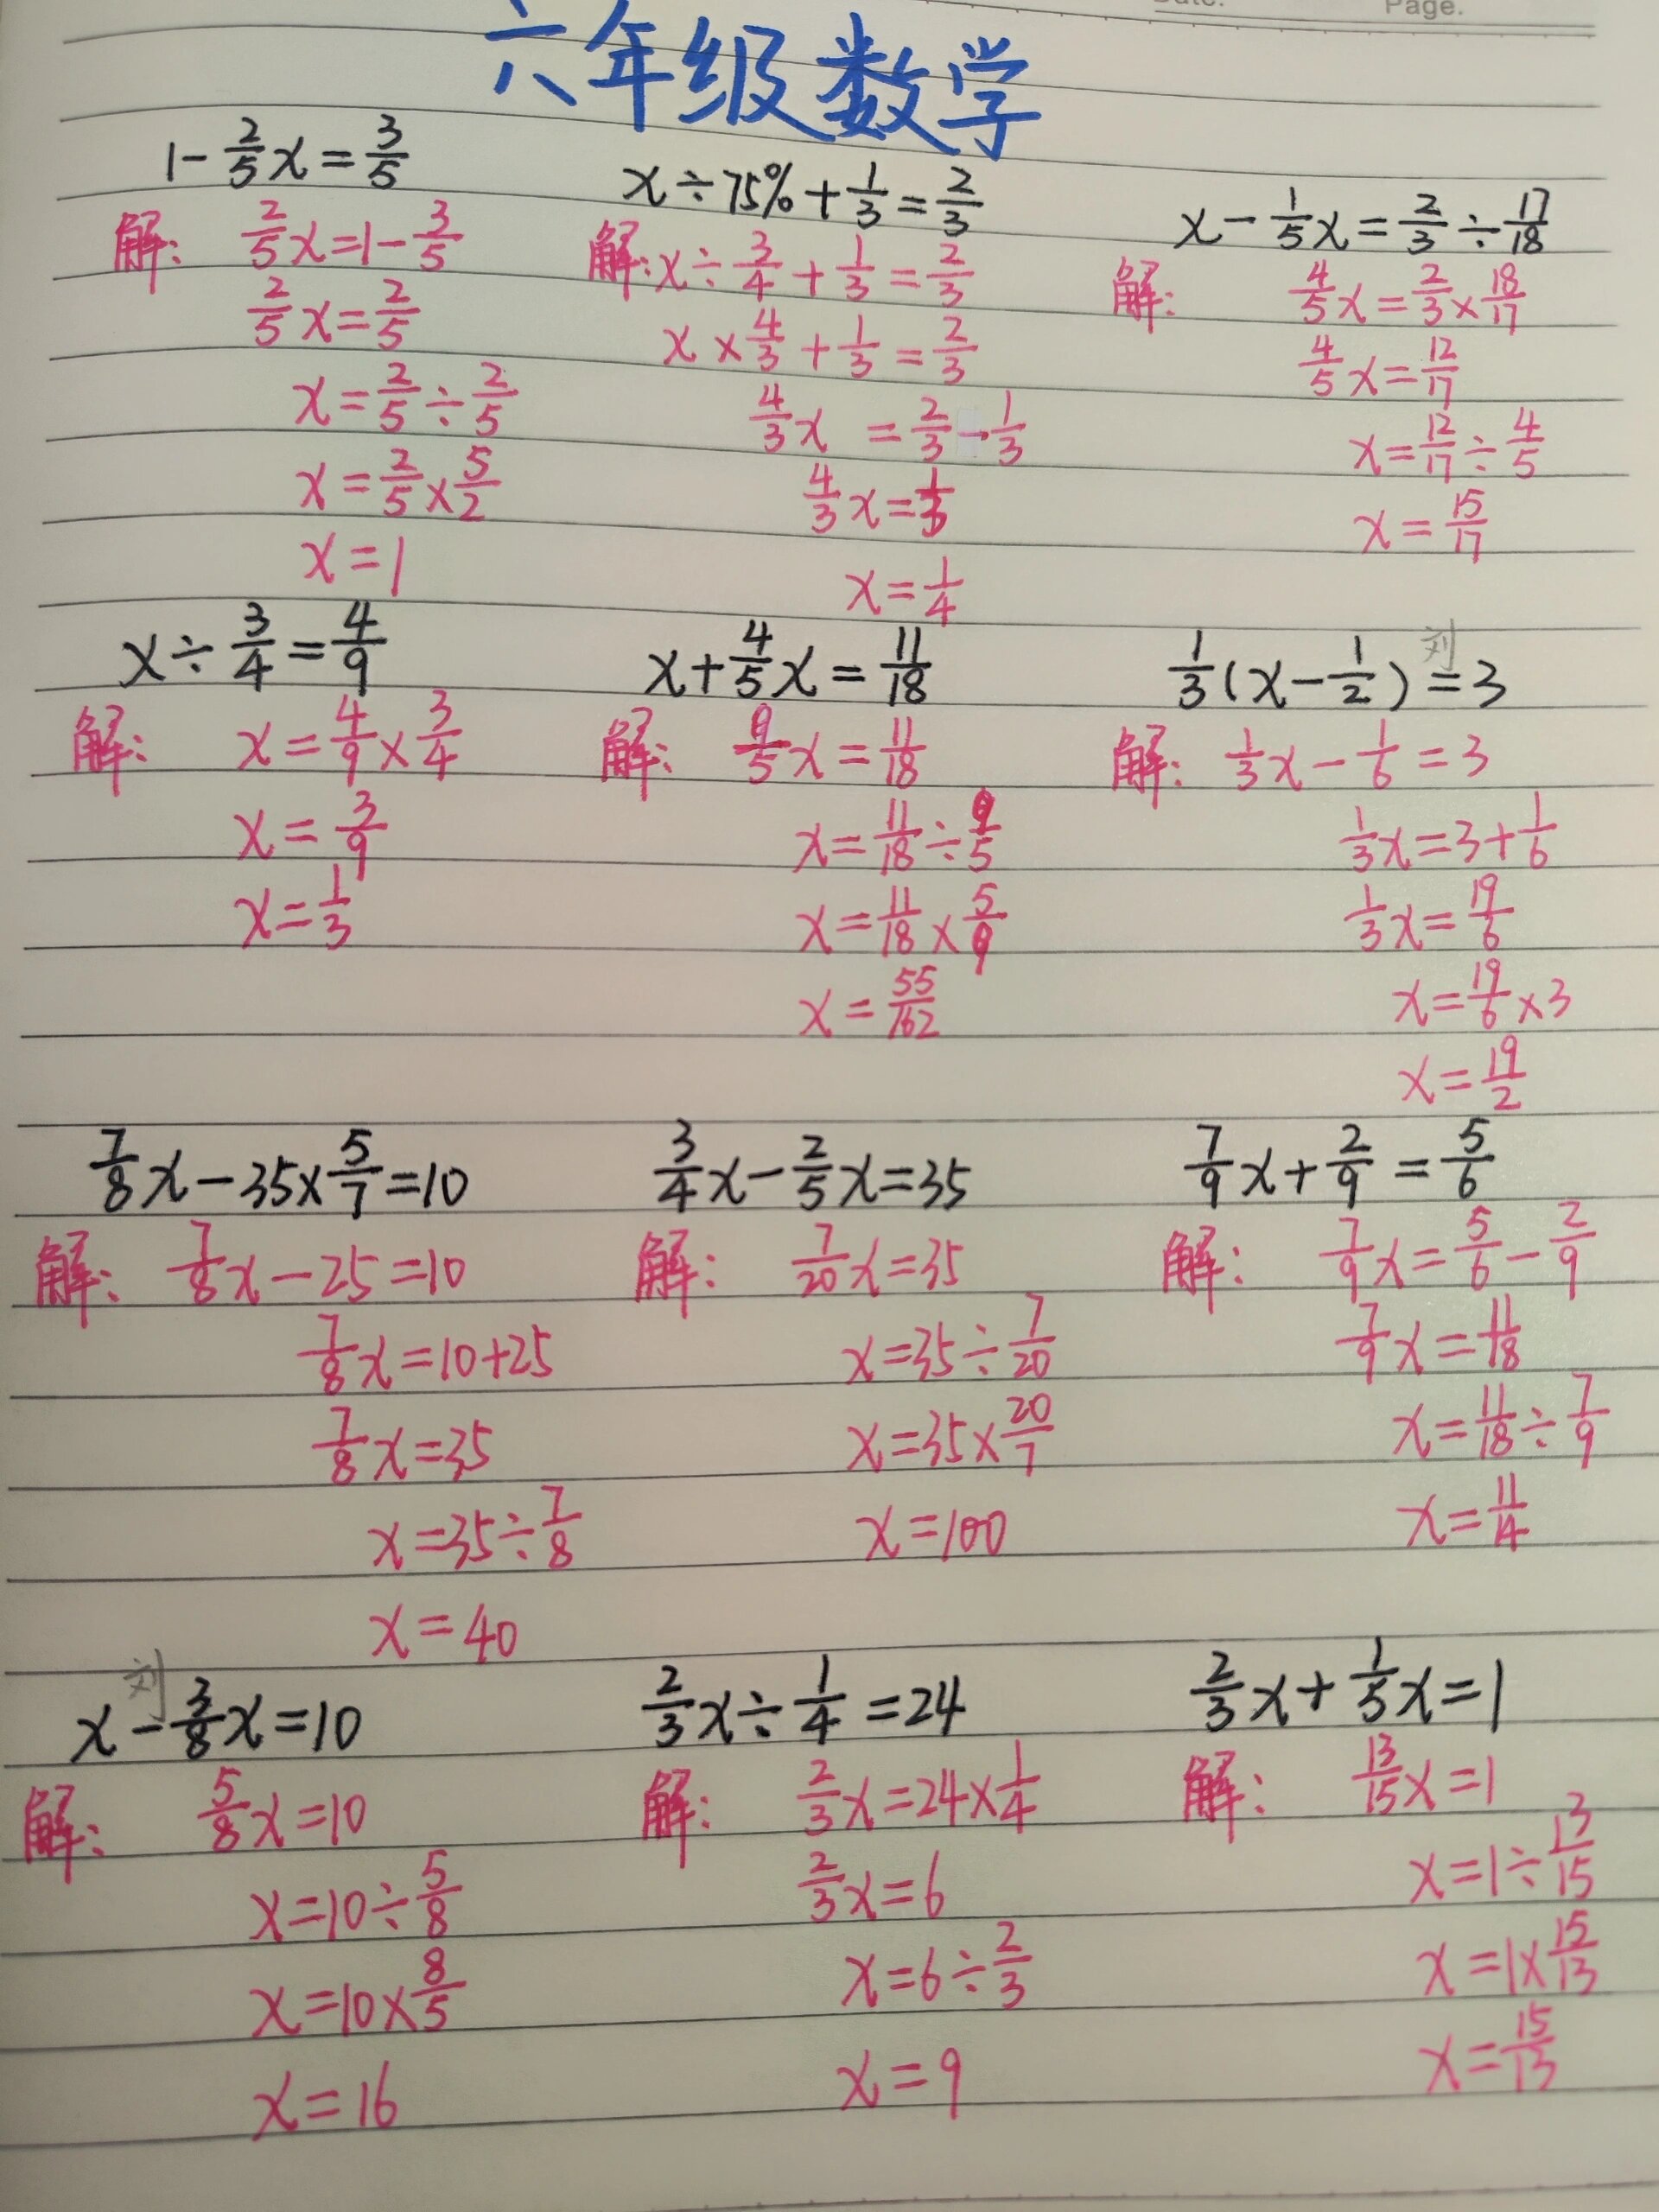 Page.
六年级数学
1-2/5x=3/5
解: 2/5x=1-3/5
2/5x=2/5
x=2/5÷2/5
x=2/5×5/2
x=1
x÷75%+1/3=2/3
解:x÷3/4+1/3=2/3
x×4/3+1/3=2/3
4/3x=2/3-1/3
4/3x=1/3
x=1/4
x-1/5x=2/3÷17/18
解: 4/5x=2/3×18/17
4/5x=12/17
x=12/17÷4/5
x=15/17
x÷3/4=4/9
解: x=4/9×3/4
x=3/9
x=1/3
x+4/5x=11/18
解: 9/5x=11/18
x=11/18÷9/5
x=11/18×5/9
x=55/162
1/3(x-1/2)=3
刘
解: 1/3x-1/6=3
1/3x=3+1/6
1/3x=19/6
x=19/6×3
x=19/2
7/8x-35×5/7=10
解: 7/8x-25=10
7/8x=10+25
7/8x=35
x=35÷7/8
x=40
3/4x-2/5x=35
解: 7/20x=35
x=35÷7/20
x=35×20/7
x=100
7/9x+2/9=5/6
解: 7/9x=5/6-2/9
7/9x=11/18
x=11/18÷7/9
x=11/14
刘
x-3/8x=10
解: 5/8x=10
x=10÷5/8
x=10×8/5
x=16
2/3x÷1/4=24
解: 2/3x=24×1/4
2/3x=6
x=6÷2/3
x=9
2/3x+1/5x=1
解: 13/15x=1
x=1÷13/15
x=1×15/13
x=15/13